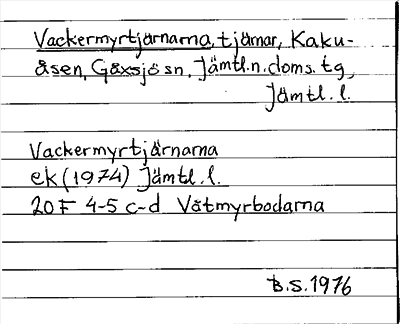 Vackermyrtjärnarna, tjärnar, Kaku-
åsen, Gåxsjö sn, Jämtl.n.doms.tg,
Jämtl.l.
Vackermyrtjärnarna
ek (1974) Jämtl.l.
20F 4-5 c-d Våtmyrbodarna
B.S.1976